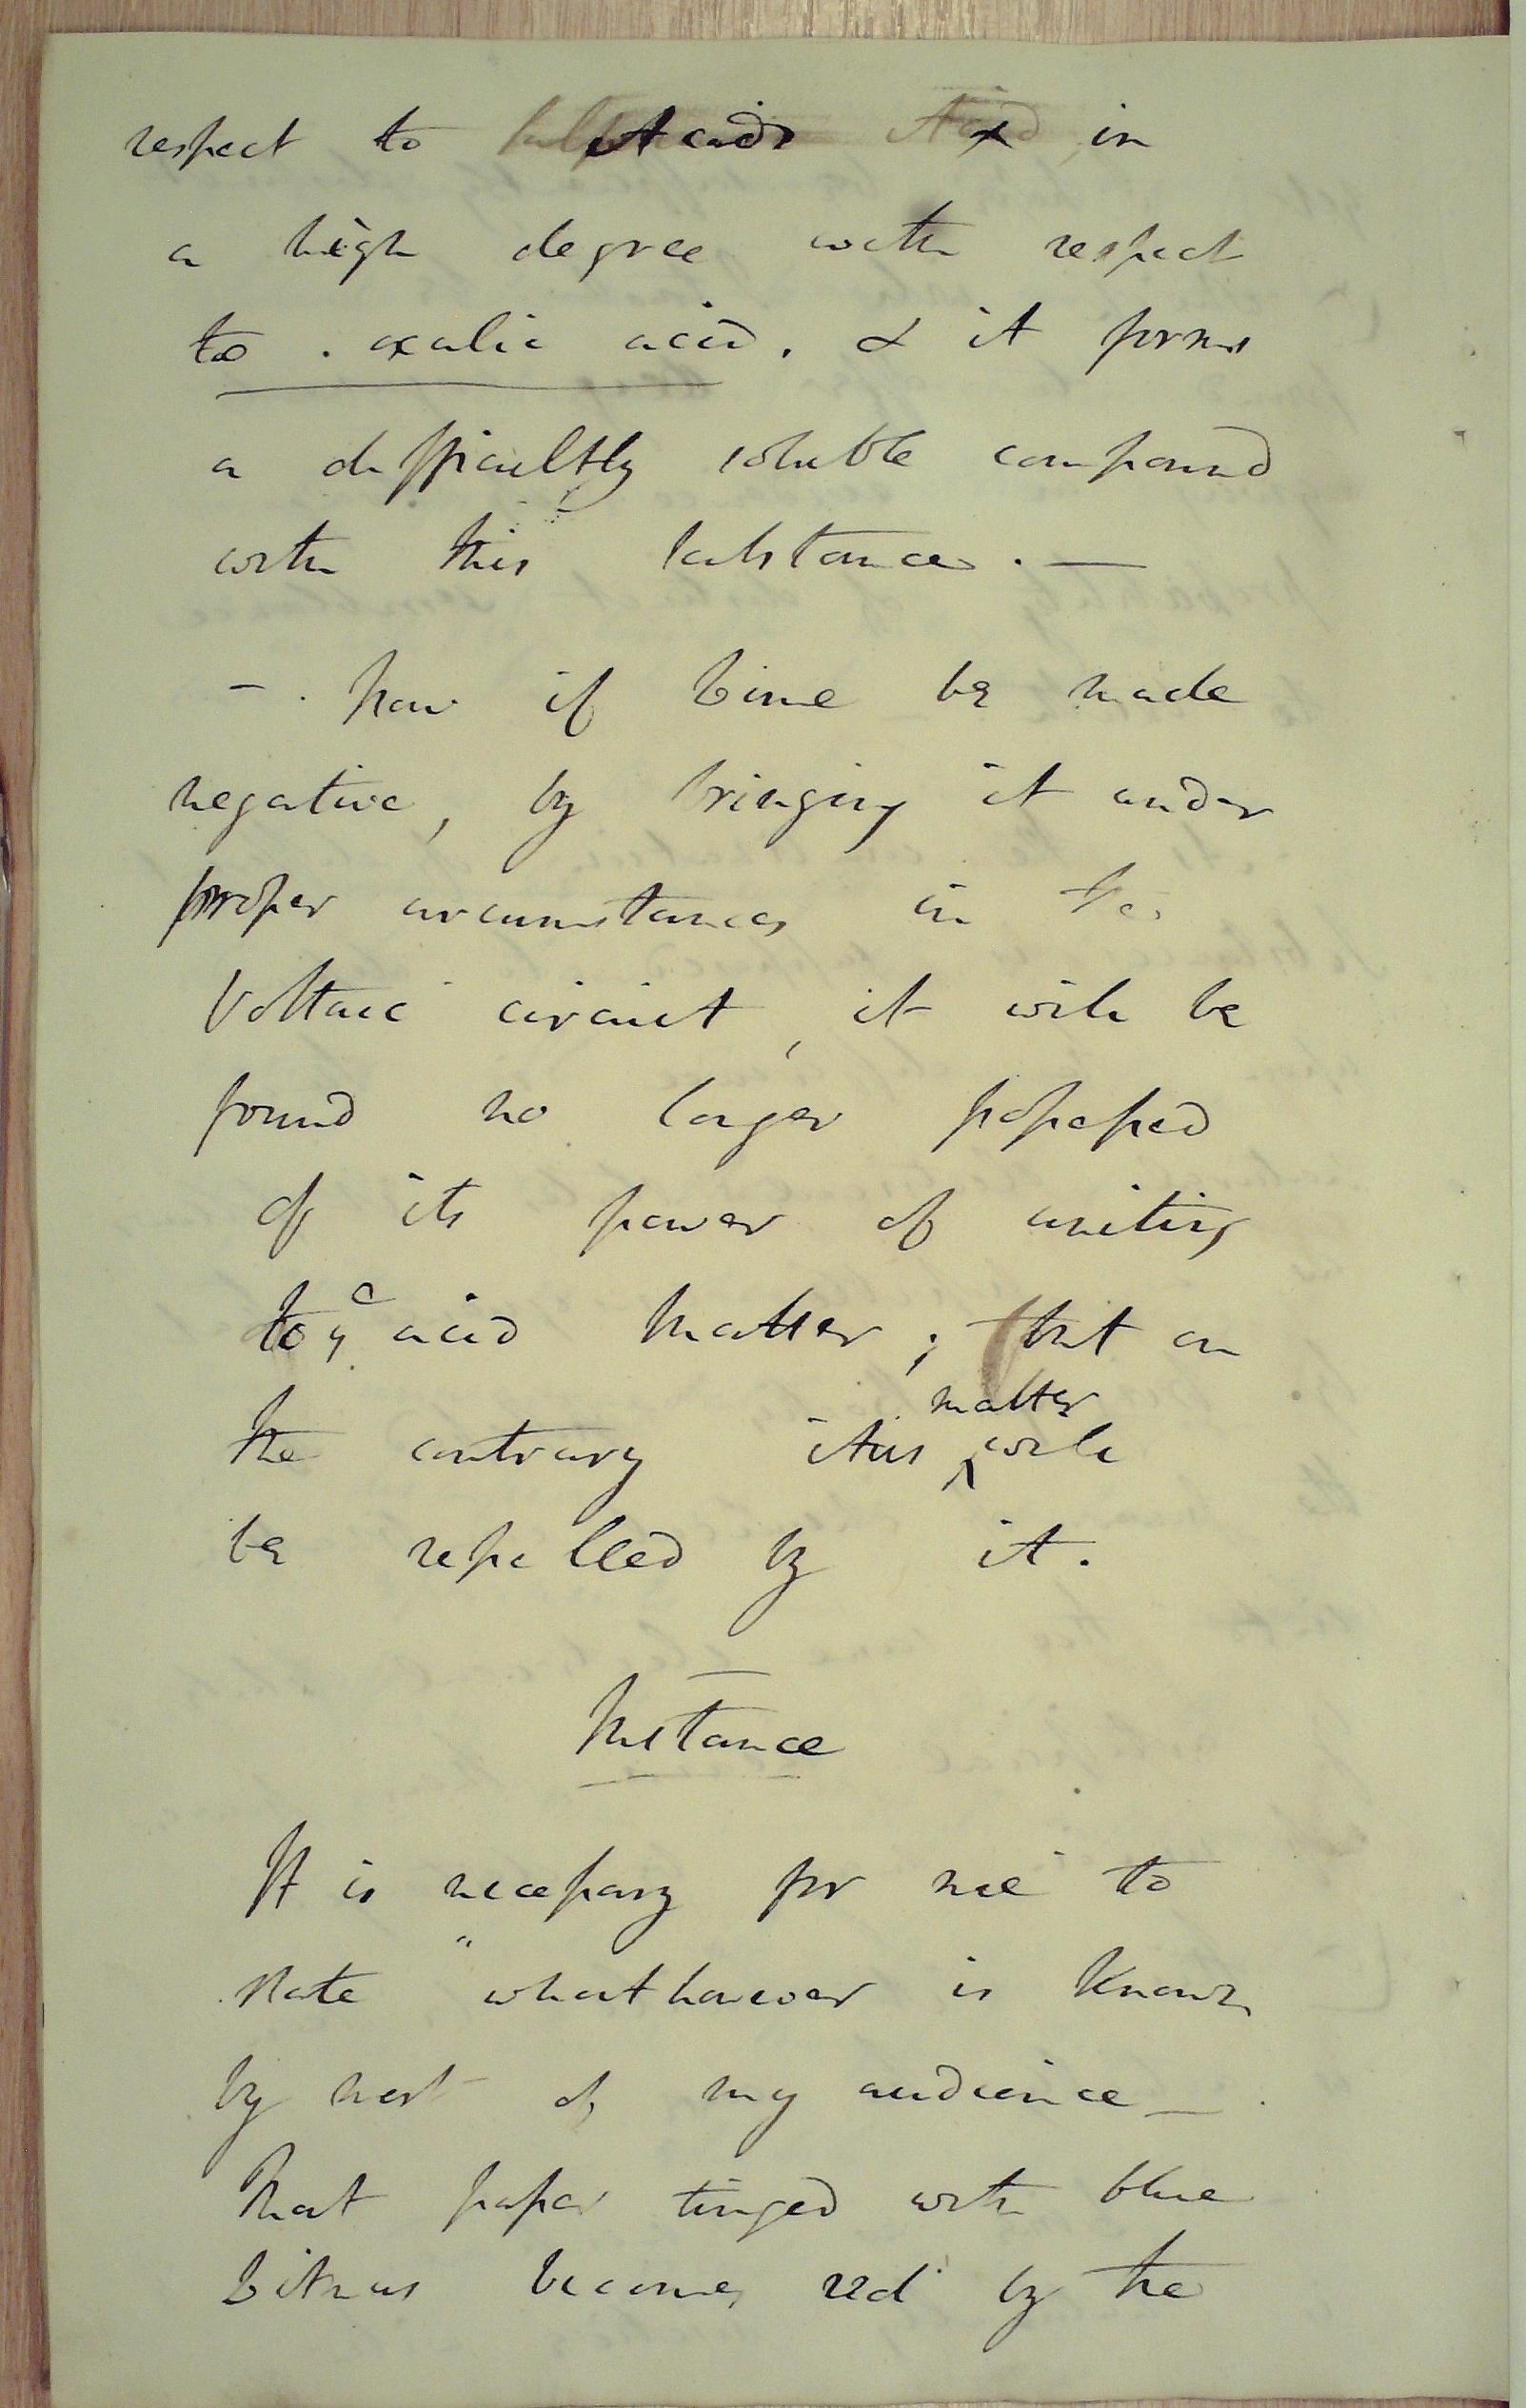 respect to Acids in
a high degree with respect
to . oxalic acid. & it forms
a difficultly soluble compound
with this substance. —
– . Now if Lime be made
negative, by bringing it under
proper circumstances in the
Voltaic circuit, it will be
found no longer possessed
of its power of uniting
to acid matter; but on
the contrary this matter will
be repelled by it.
Instance
It is necessary for me to
state "what however is known
by most of my audience —
that paper tinged with blue
Litmus becomes red by the